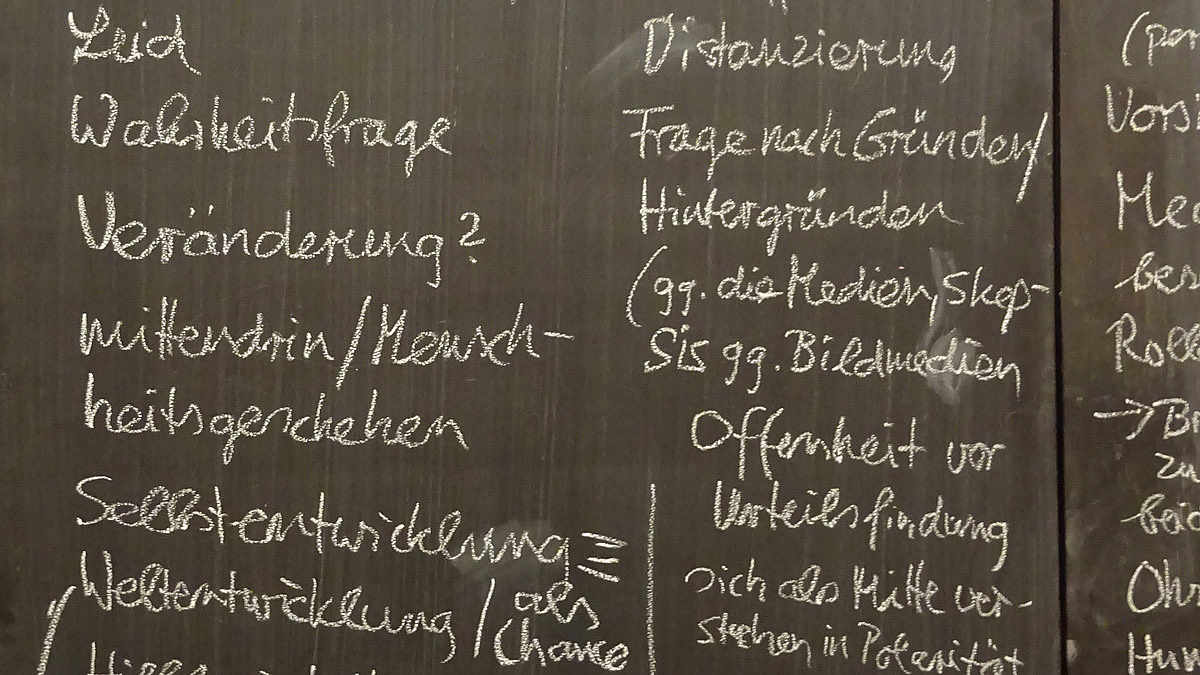 Leid
Wahrheitsfrage
Veränderung?
mittendrin/Mensch-
heitsgeschehen
Selbstentwicklung
Weltentwicklung / als
Chance
Distanzierung
Frage nach Gründen/
Hintergründen
(gg. die Medien, Skep-
sis gg. Bildmedien
Offenheit vor
Urteilsfindung
sich als Mitte ver-
stehen in Polarität
(per
Vors
Me
bes
Roll
→ Bi
zu
Oh
Hum